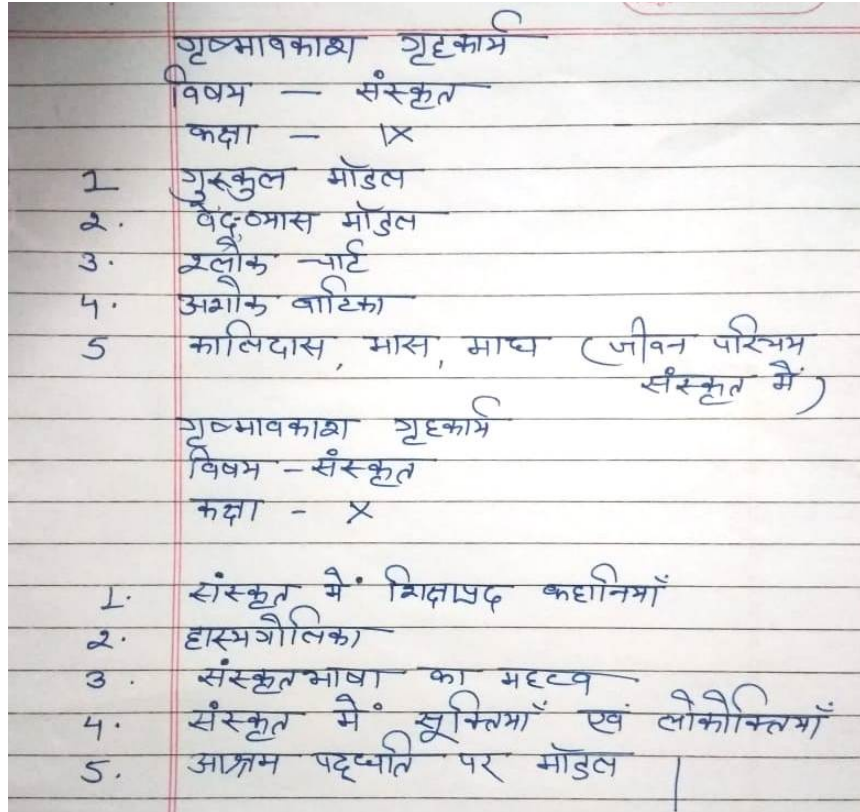 गृष्मावकाश गृहकार्य
विषय — संस्कृत
कक्षा — IX
1 गुरुकुल मॉडल
2. वेद-व्यास मॉडल
3. श्लोक चार्ट
4. अशोक वाटिका
5 कालिदास, भास, माघ (जीवन परिचय
संस्कृत में)
गृष्मावकाश गृहकार्य
विषय - संस्कृत
कक्षा - X
1. संस्कृत में शिक्षाप्रद कहानियाँ
2. हास्यगोलिका
3. संस्कृतभाषा का महत्व
4. संस्कृत में सूक्तियाँ एवं लोकोक्तियाँ
5. आश्रम पद्धति पर मॉडल